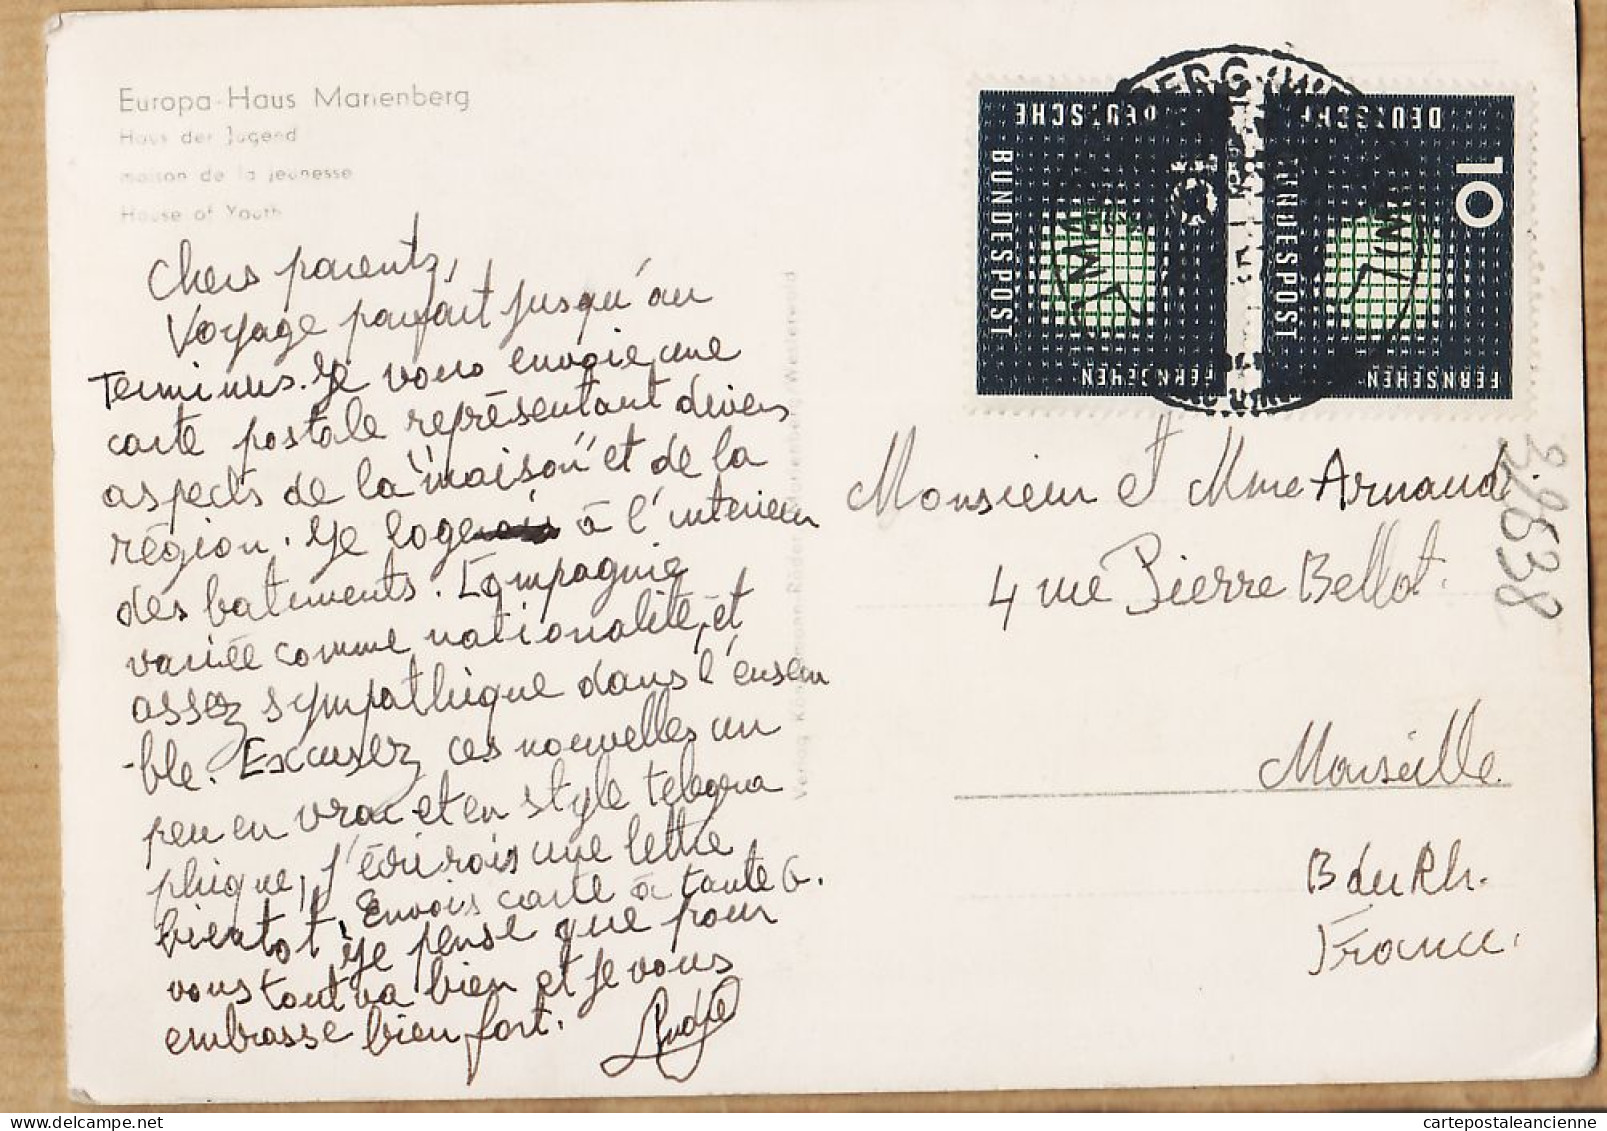 Europa-Haus Marienberg
Haus der Jugend
maison de la jeunesse
House of Youth
Chers parents,
Voyage parfait jusqu'au
Terminus. Je vous envoie une
carte postale représentant divers
aspects de la "maison" et de la
région. Je loge à l'interieur
des batiments. Compagnie
variée comme nationalité, et
assez sympathique dans l'ensem
-ble. Excusez ces nouvelles un
peu en vrac et en style telegra
phique, j'écrirais une lettre
bientot. Envois carte à tante G.
Je pense que pour
vous tout va bien et je vous
embrasse bien fort.
André
DEUTSCHE
BUNDESPOST
FERNSEHEN
DEUTSCHE
BUNDESPOST
FERNSEHEN
10
Monsieur et Mme Arnaud.
4 rue Pierre Bellot.
Marseille
B du Rh.
France.
39638
www.cartepostaleancienne.com